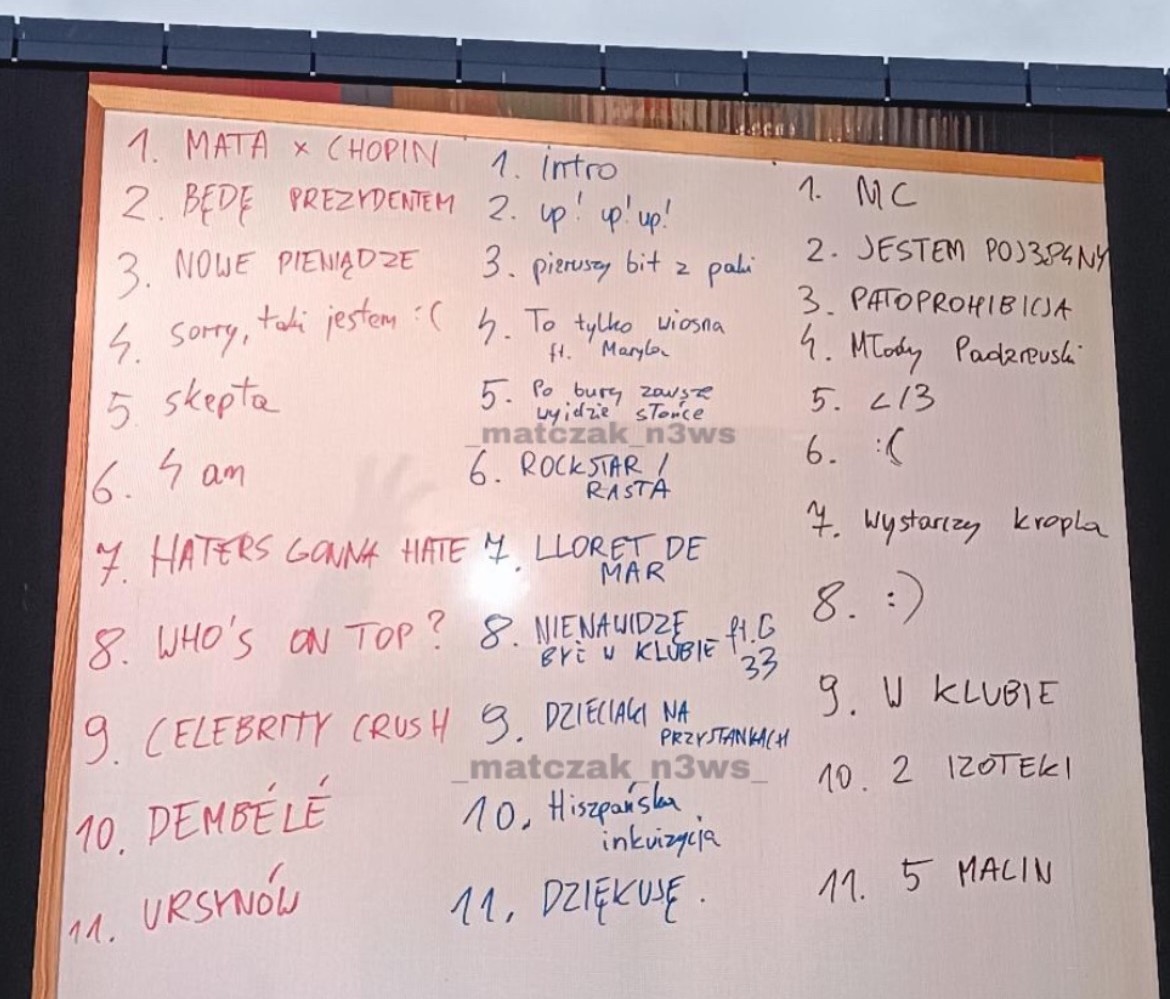 1. MATA x CHOPIN
2. BĘDĘ PREZYDENTEM
3. NOWE PIENIĄDZE
4. sorry, taki jestem :(
5. skepta
6. 4 am
7. HATERS GONNA HATE
8. WHO'S ON TOP?
9. CELEBRITY CRUSH
10. DEMBÉLÉ
11. URSYNÓW
1. intro
2. up! up! up!
3. pierwszy bit z paki
4. To tylko wiosna
ft. Maryla
5. Po burzy zawsze
wyjdzie słońce
_matczak_n3ws
6. ROCKSTAR /
RASTA
7. LLORET DE
MAR
8. NIENAWIDZĘ ft. G
BYĆ W KLUBIE 33
9. DZIECIAKI NA
PRZYSTANKACH
_matczak_n3ws_
10. Hiszpańska
inkwizycja
11. DZIĘKUJĘ.
1. MC
2. JESTEM
3. PATOPROHIBICJA
4. Młody
5. </3
6. :(
7. Wystarczy kropla
8. :)
9. W KLUBIE
10. 2 IZOTEKI
11. 5 MALIN